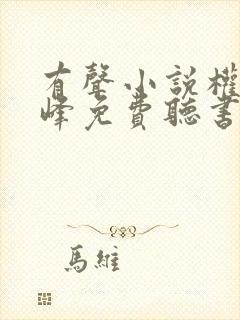 有聲小說權
峰免費聽書
馬維